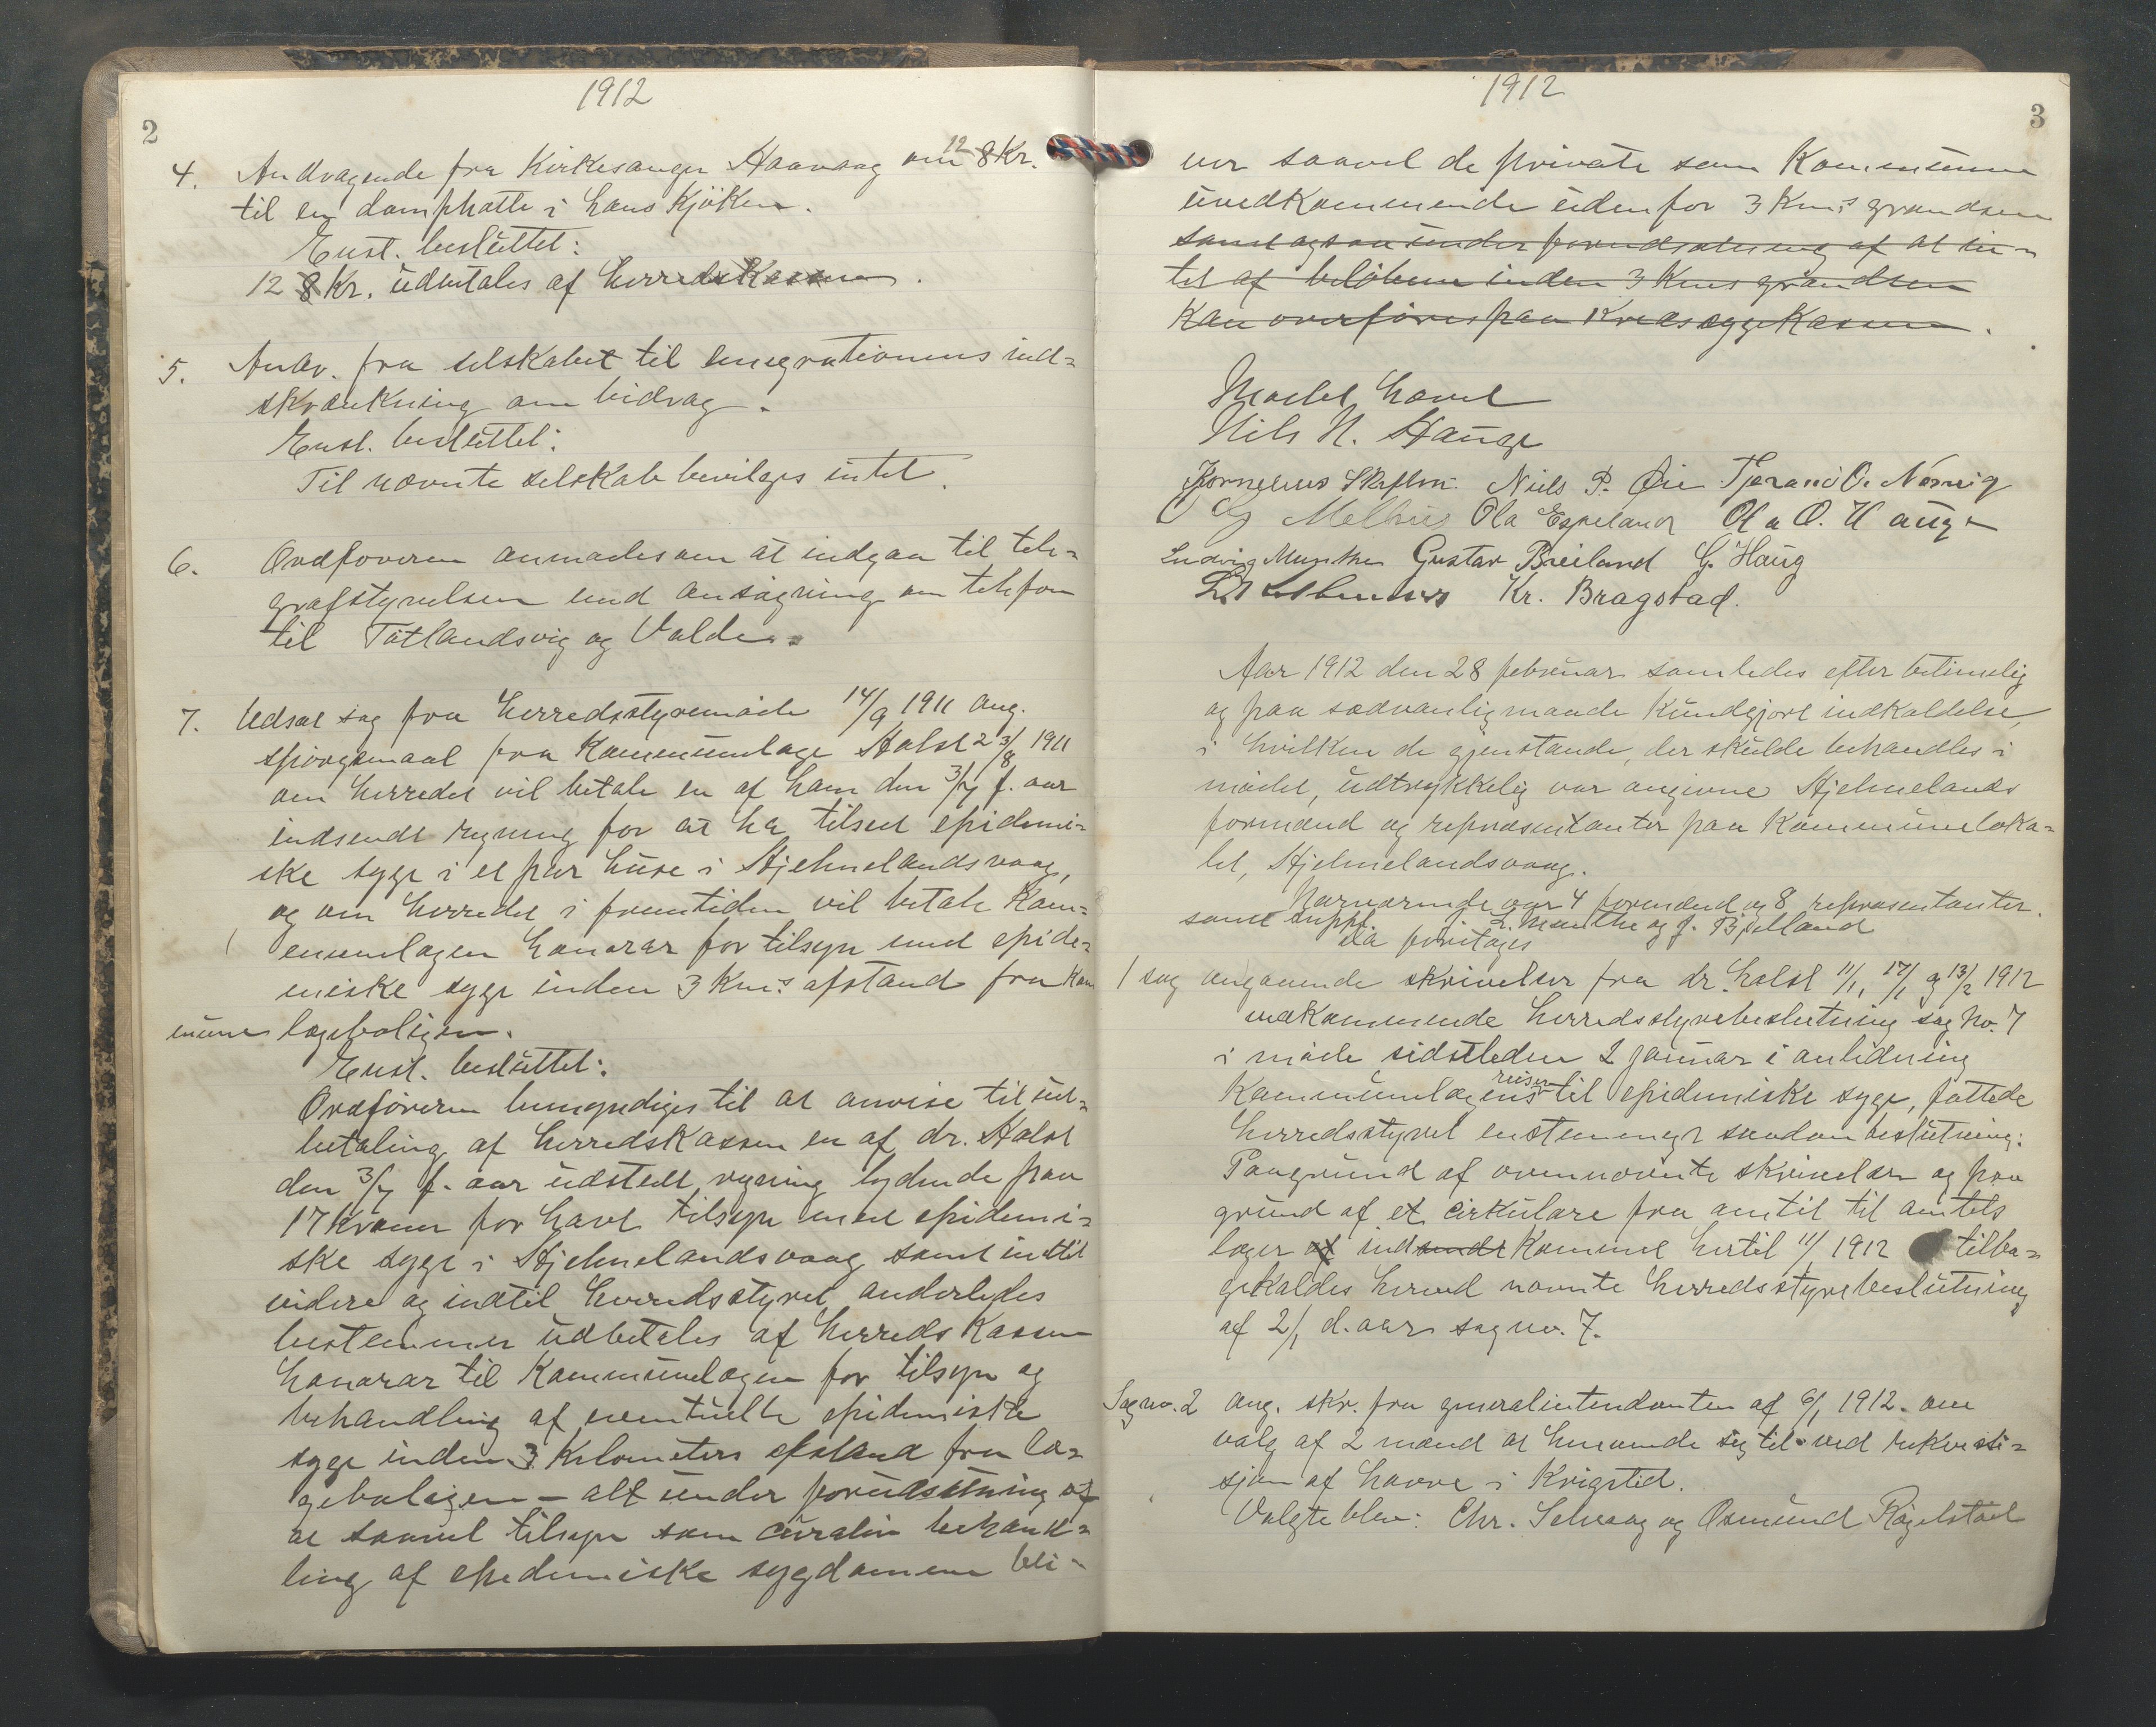 1912
2
4. Andragende fra Kirkesanger Haavaag om 12 8 Kr.
til en damphatte i hans Kjøken.
Enst. besluttet:
12 8 Kr. udbetales af herredsKassen.
5. Andr. fra selskabet til emegrationens ind=
skrænkning om bidrag.
Enst. besluttet:
Til nævnte selskab bevilges intet.
6. Ordføreren anmodes om at indgaa til tele=
grafstyrelsen med ansøgning om telefon
til Tøtlandsvig og Valde.
7. Udsat sag fra herredsstyremøde 14/9 1911 ang.
spørgsmaal fra Kommunelæge Holst 23/8 1911
om herredet vil betale en af ham den 3/7 f. aar
indsendt regning for at ha tilseet epidemi=
ske syge i et par huse i Hjelmelandsvaag,
og om herredet i fremtiden vil betale Kom=
munelægen honorar for tilsyn med epide=
miske syge inden 3 Km.s afstand fra Kom
mune lægeboligen.
Enst. besluttet:
Ordføreren bemyndiges til at anvise til ud=
betaling af herredsKassen en af dr. Holst
den 3/7 f. aar udstedt regning lydende paa
17 Kroner for havt tilsyn med epidemi=
ske syge i Hjelmelandsvaag samt indtil
videre og indtil herredsstyret anderledes
bestemmer udbetales af herredsKassen
honorar til Kommunelægen for tilsyn og
behandling af eventuelle epidemiske
syge inden 3 Kilometers afstand fra læ=
geboligen – alt under forudsætning af
at saavel tilsyn som curativ behand=
ling af epedemiske sygdomme bli=
1912
3
ver saavel de private som Kommunen
uvedKommende udenfor 3 Km.s grændsen
samt ogsaa under forudsætning af at in=
tet af beløbene inden 3 Kms grændsen
Kan overføres paa KredssygeKassen.
Nils N. Hauge
Kornelius Niels P. Øie Tjerand O.
Melhus Ola Espeland Ola O. Hauge
Ludvig Munthe Gustav Breiland G. Haug
Kr. Bragstad.
Aar 1912 den 28 februar samledes efter betimelig
og paa sædvanlig maade Kundgjort indkaldelse,
i hvilken de gjenstande, der skulde behandles i
mødet, udtrykkelig var angivne Hjelmelands
formænd og repræsentanter paa Kommuneloka=
let, Hjelmelandsvaag.
Nærværende var 4 formænd og 8 repræsentanter.
samt suppl. J. L. Munthe og J. Bjelland
da foretages
1 sag angaaende skrivelser fra dr. Holst 11/1, 17/1 og 13/2 1912
vedkommende herredsstyrebeslutning sag No. 7
i møde sidstleden 2 januar i anledning
Kommunelægens reiser til epidemiske syge, fattede
herredsstyret enstemmigt saadan beslutning:
Paagrund af ovennævnte skrivelser og paa
grund af et cirkulære fra amtet til amtets
læger af indsendt Kommet hertil 11/1 1912 tilba=
gekaldes herved nævnte herredsstyrebeslutning
af 2/1 d. aar sag no. 7.
Sag no. 2 ang. skr. fra generalintendanten af 6/1 1912. om
valg af 2 mænd at henvende sig til ved rekvesi=
sjon af havre i Krigstid.
Valgte blev: Chr. Selvaag og Osmund Røgelstad